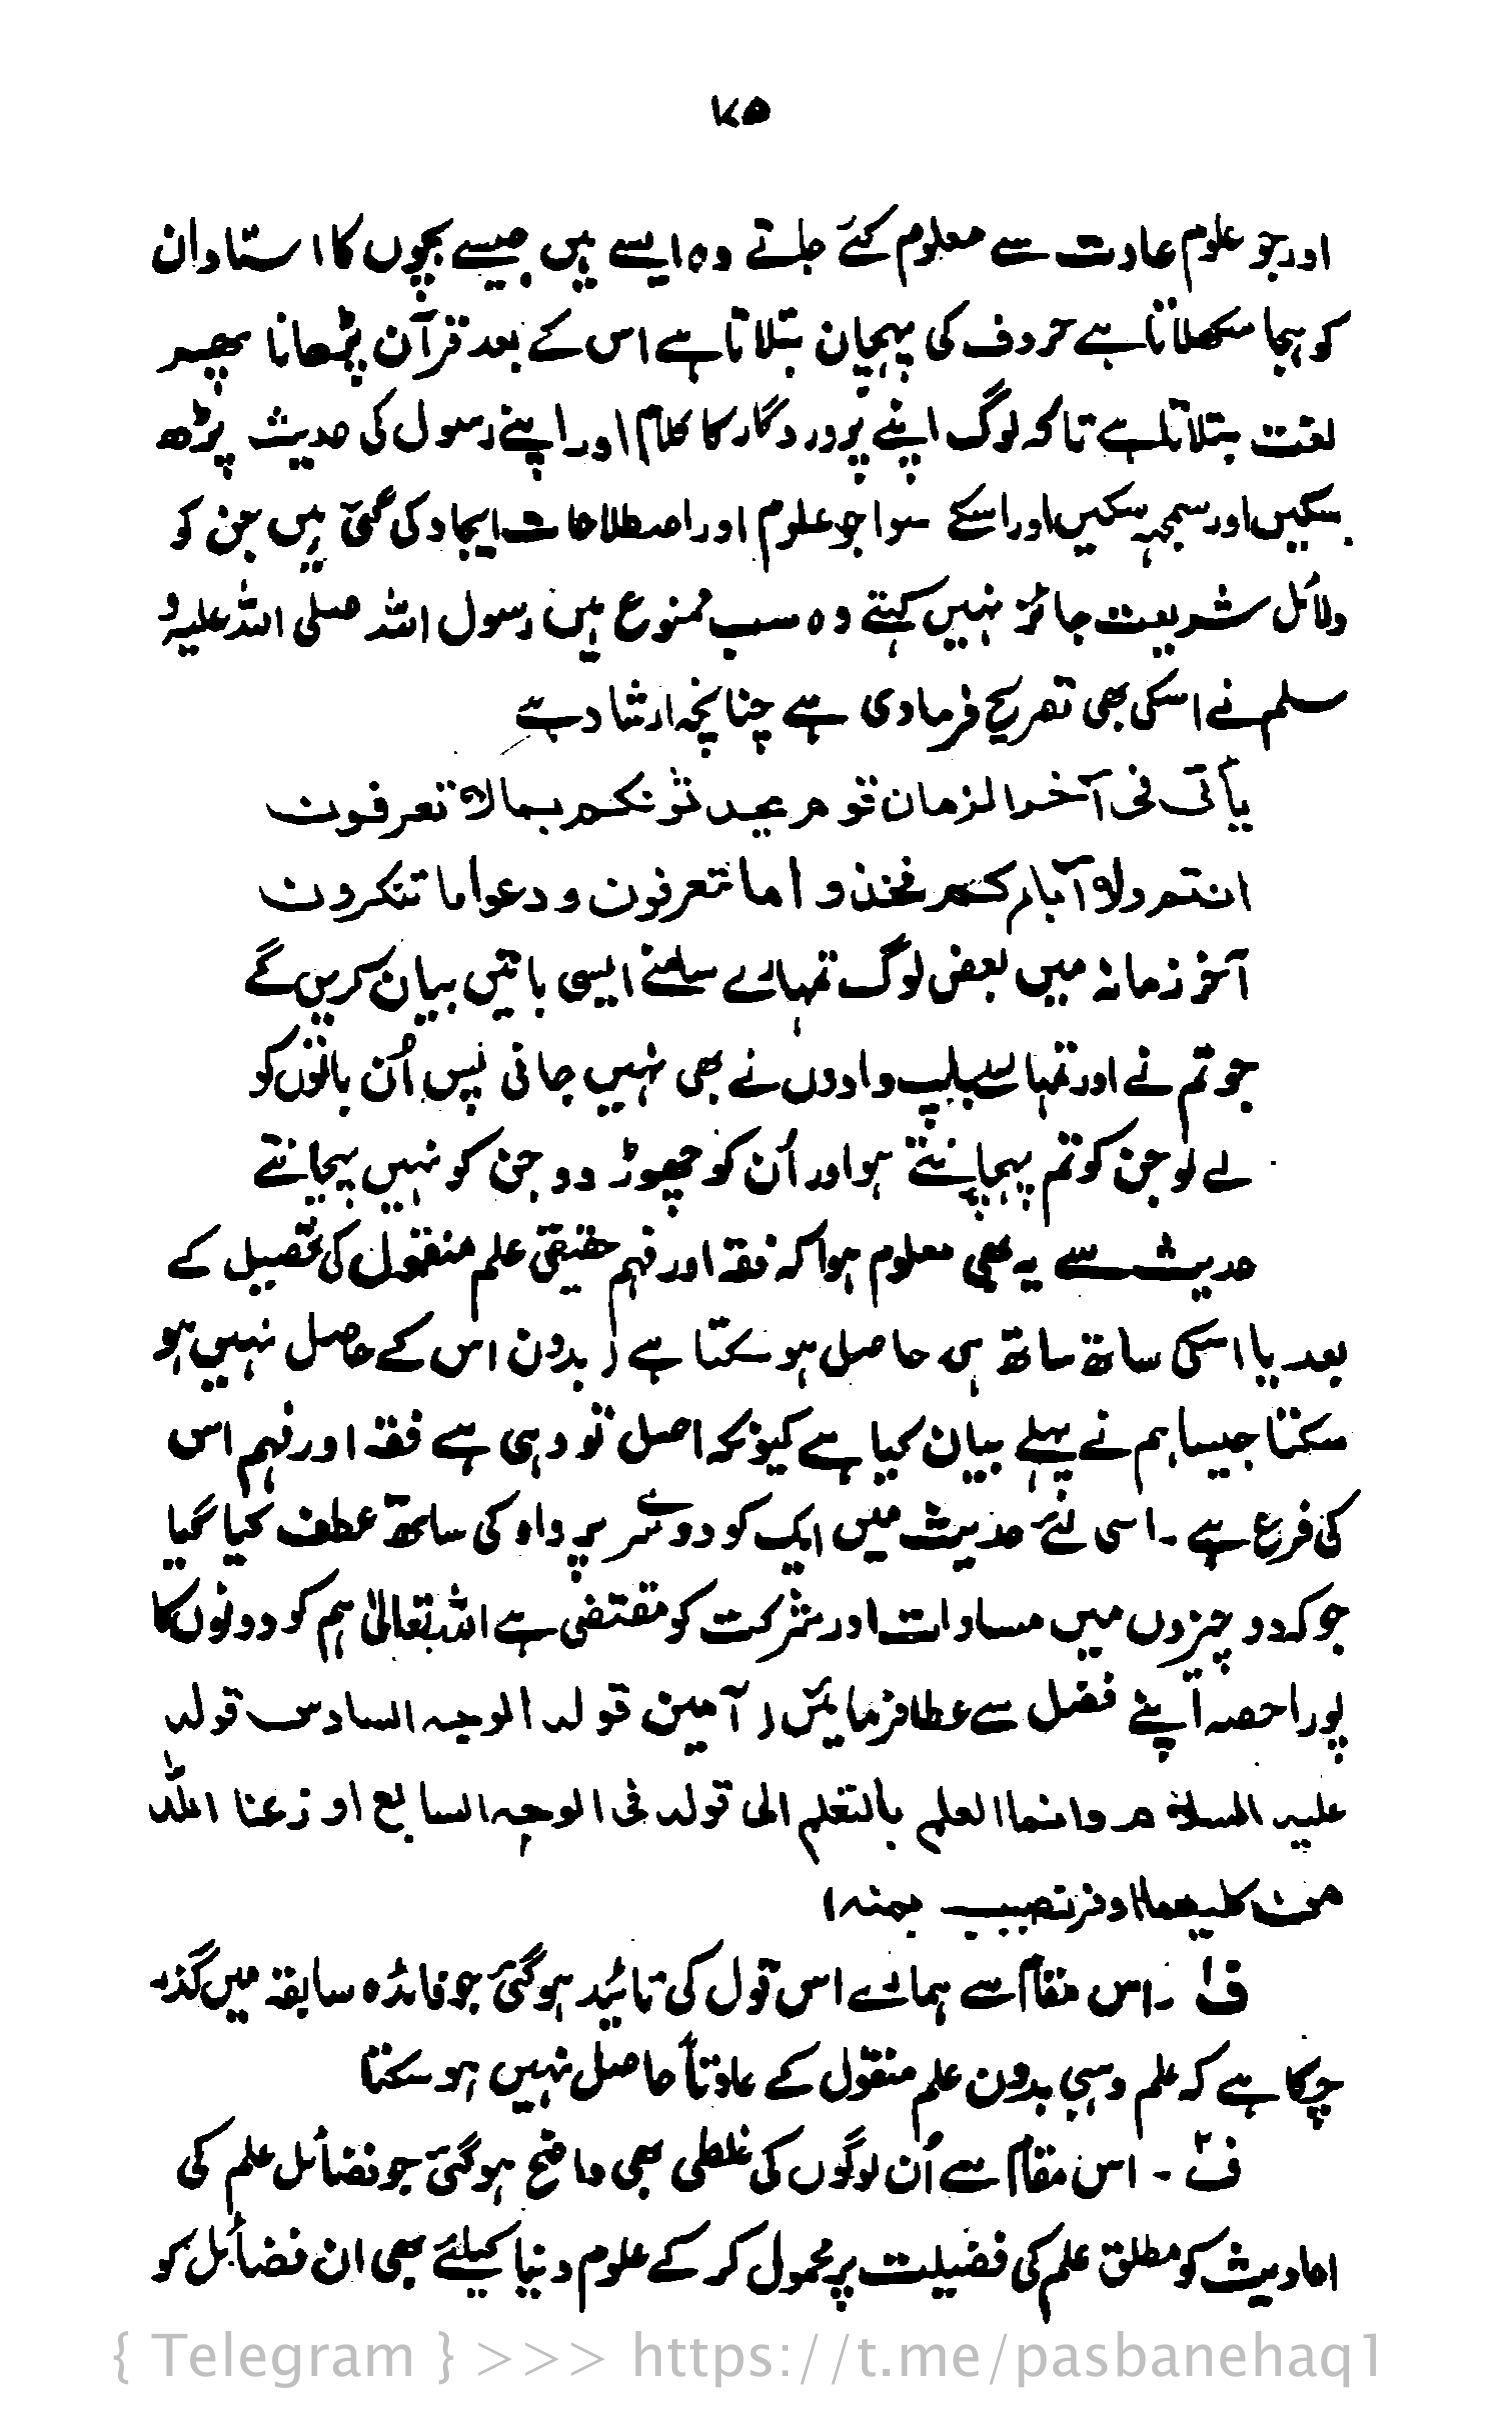 ۷۵
اور جو علوم عادت سے معلوم کئے جاتے وہ ایسے ہیں جیسے بچوں کا استاد ان
کو ہجا سکھلاتا ہے حروف کی پہچان بتلاتا ہے اس کے بعد قرآن پڑھانا پھر
لغت بتلاتا ہے تاکہ لوگ اپنے پروردگار کا کلام اور اپنے رسول کی حدیث پڑھ
سکیں اور سمجہہ سکیں اور اسکے سوا جو علوم اور اصطلاحات ایجاد کی گئی ہیں جن کو
دلائل شریعت جائز نہیں کہتے وہ سب ممنوع ہیں رسول اللہ صلی اللہ علیہ و
سلم نے اسکی بھی تصریح فرمادی ہے چنانچہ ارشاد ہے
یأتی فی آخر الزمان قوم یحدثونکم بما لا تعرفون
انتم ولا آباءکم فخذوا ما تعرفون ودعوا ما تنکرون
آخر زمانہ میں بعض لوگ تمہارے سامنے ایسی باتیں بیان کریں گے
جو تم نے اور تمہارے باپ دادوں نے بھی نہیں جانی پس اُن باتوں کو
لے لو جن کو تم پہچانتے ہو اور اُن کو چھوڑ دو جن کو نہیں پہچانتے
حدیث سے یہ بھی معلوم ہوا کہ فقہ اور فہم حقیقی علم منقول کی تحصیل کے
بعد یا اسکی ساتھ ساتھ ہی حاصل ہو سکتا ہے ( بدون اس کے حاصل نہیں ہو
سکتا جیسا ہم نے پہلے بیان کیا ہے کیونکہ اصل تو وہی ہے فقہ اور فہم اس
کی فرع ہے ۔ اسی لئے حدیث میں ایک کو دوسرے پر واو کی ساتھ عطف کیا گیا
جو کہ دو چیزوں میں مساوات اور شرکت کو مقتضی ہے اللہ تعالیٰ ہم کو دونوں کا
پورا حصہ اپنے فضل سے عطا فرمائیں ( آمین قولہ الوجہ السادس قولہ
علیہ السلام وانما العلم بالتعلم الی قولہ فی الوجہ السابع اوزعنا اللہ
من کلیھما اوفر نصیب بمنہ ۱
ف۱ ۔ اس مقام سے ہمارے اس قول کی تائید ہو گئی جو فائدہ سابقہ میں گذر
چکا ہے کہ علم وہبی بدون علم منقول کے عادتاً حاصل نہیں ہو سکتا
ف۲ ۔ اس مقام سے اُن لوگوں کی غلطی بھی واضح ہو گئی جو فضائل علم کی
احادیث کو مطلق علم کی فضیلت پر محمول کر کے علوم دنیا کیلئے بھی ان فضائل کو
{ Telegram } >>> https://t.me/pasbanehaq1